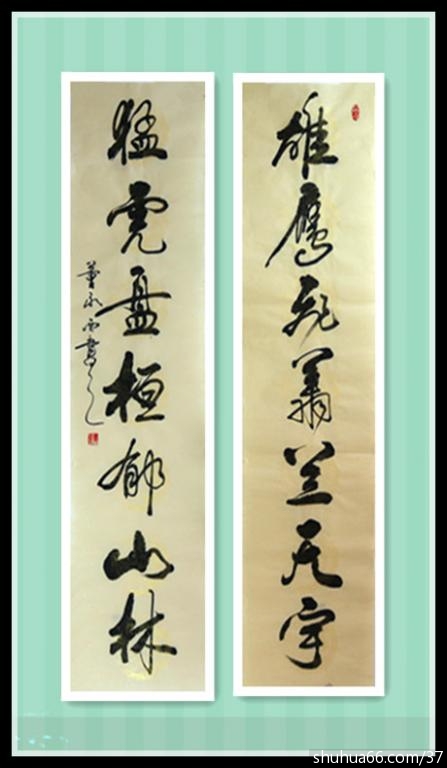 雄鹰飛翥兰天宇
猛虎盘桓郁山林
董永西書
shuhua66.com/37